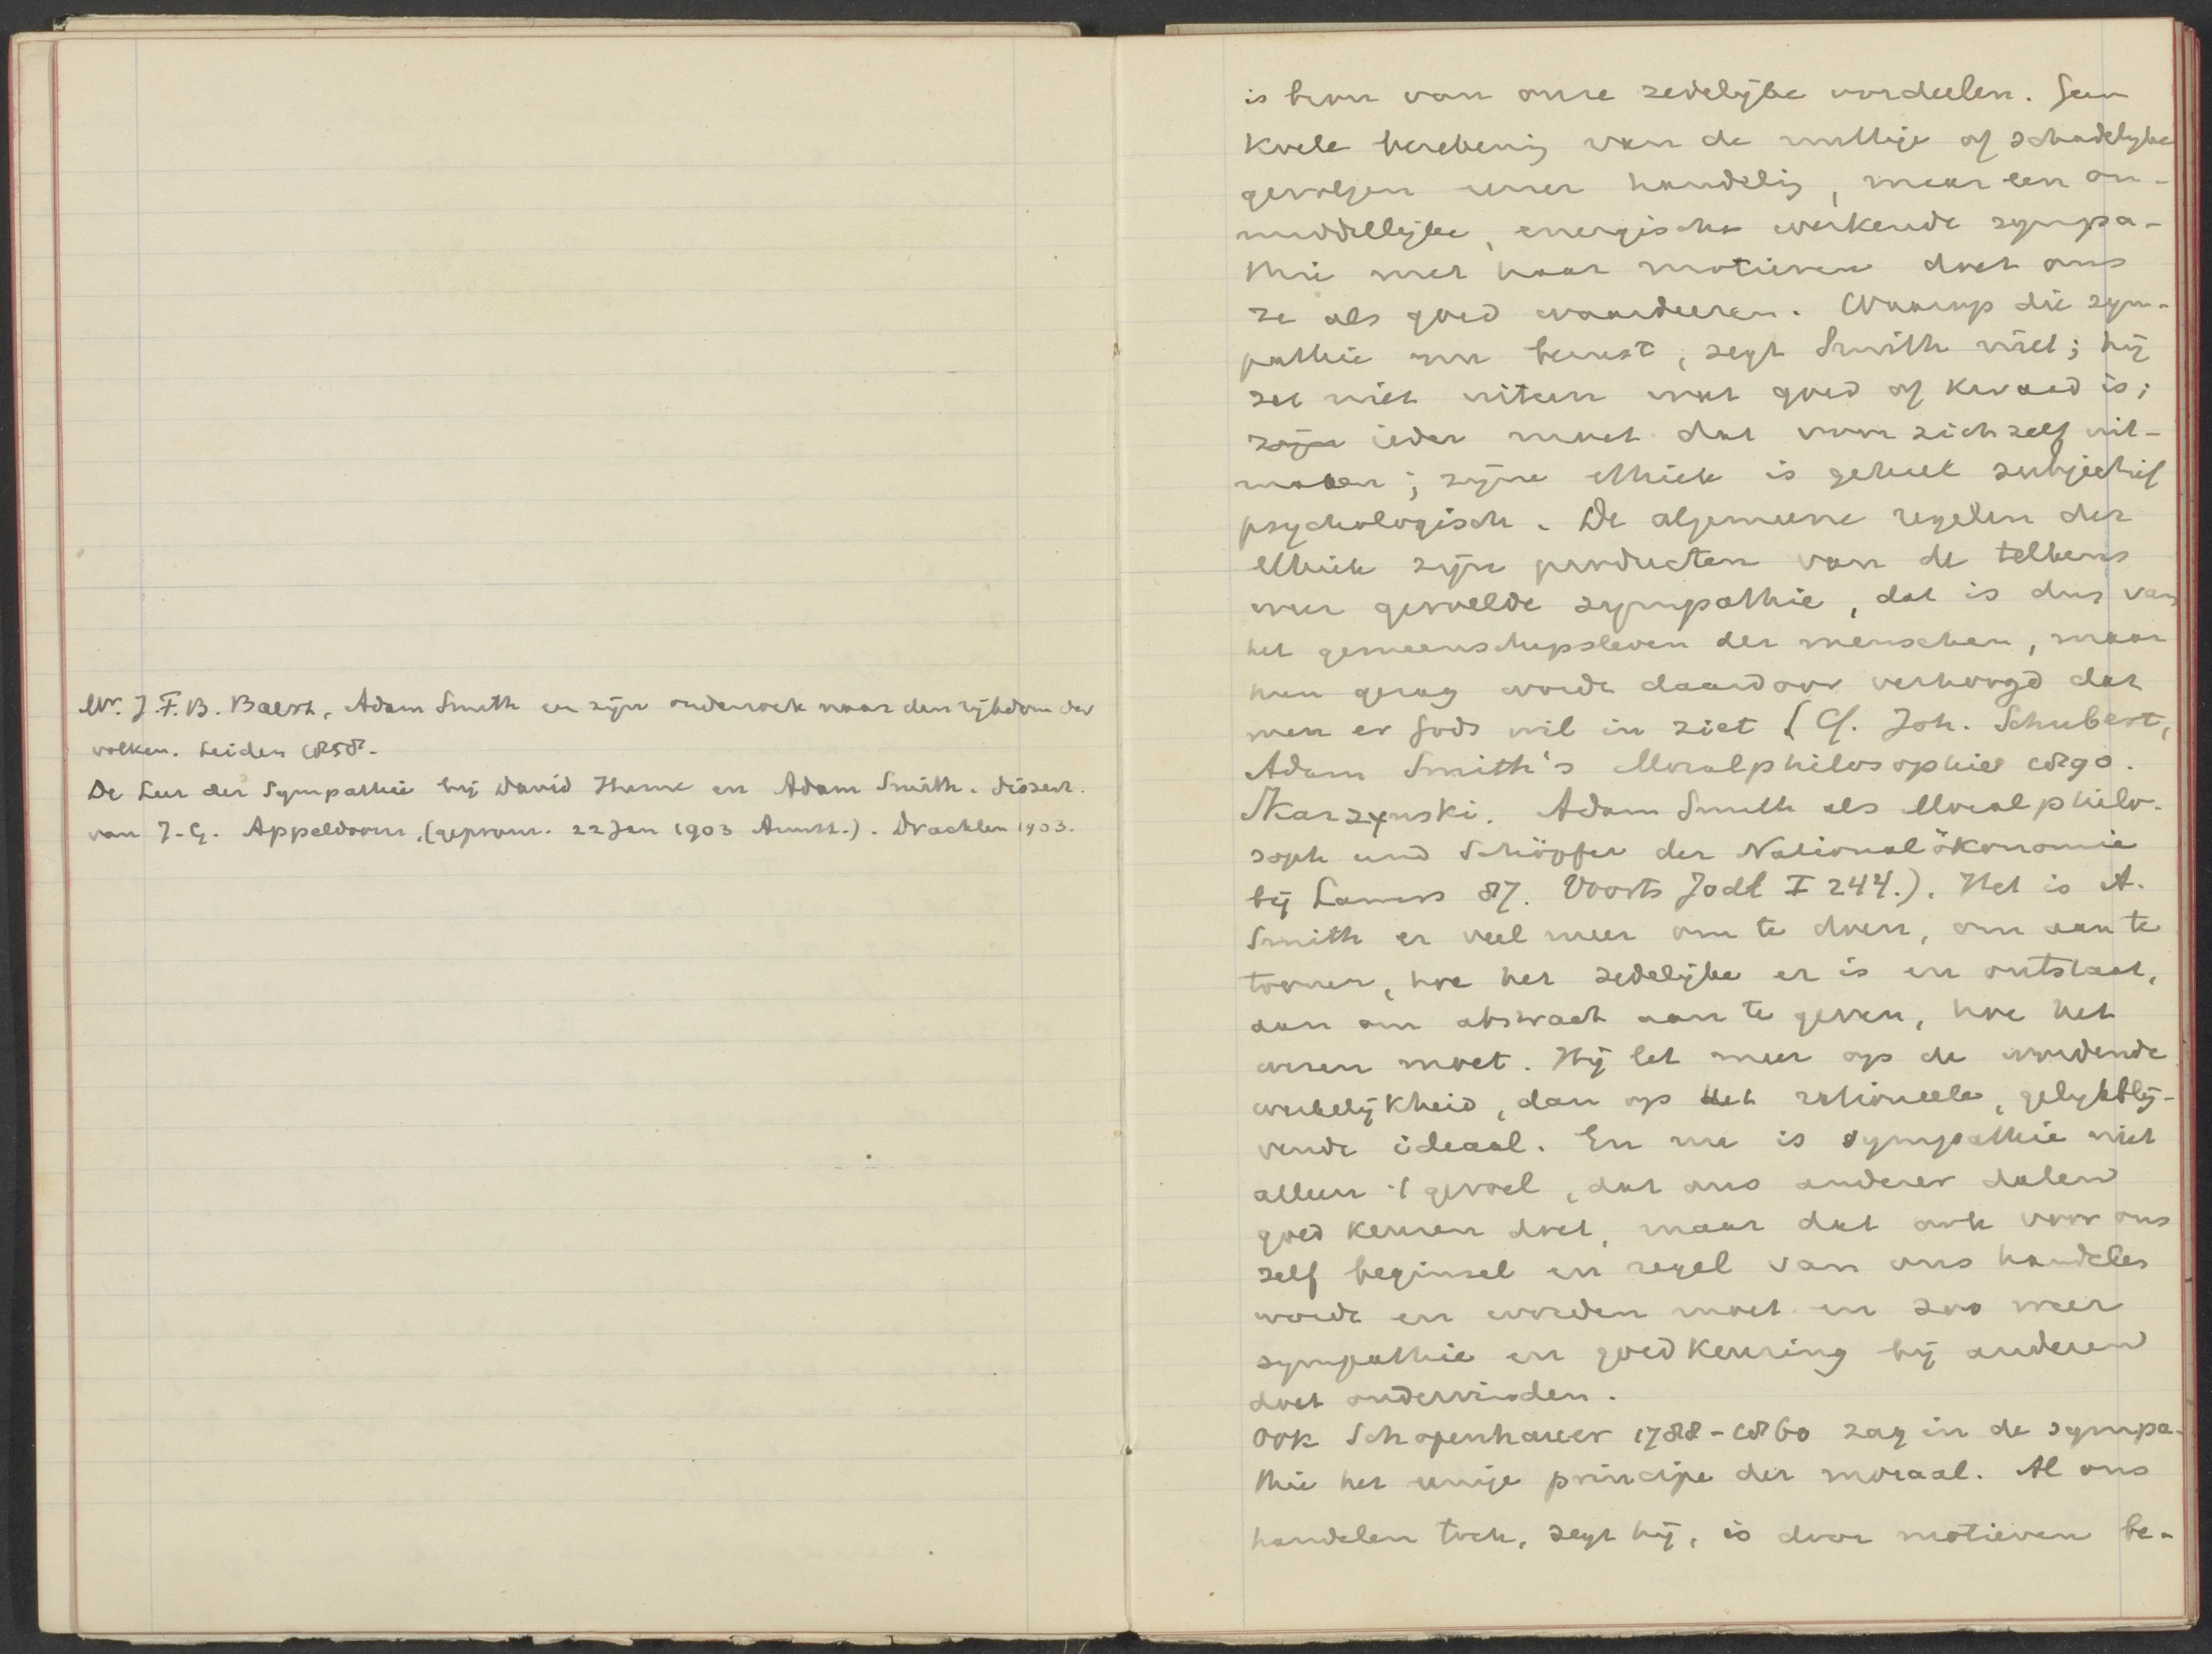 Mr. J.F.B. Baert, Adam Smith en zijn onderzoek naar den rijkdom der
volken. Leiden 1858.
De Leer der Sympathie bij David Hume en Adam Smith. dissert.
van J.G. Appeldoorn, (geprom. 22 Jan 1903 Amst.). Drachten 1903.
is bron van onze zedelijke oordeelen. Geen
koele berekening van de nuttige of schadelijke
gevolgen eener handelig, maar een on-
middellijke, energische werkende sympa-
thie met haar motieven doet ons
ze als goed waardeeren. Waarop die sym-
pathie nu berust, zegt Smith niet; hij
zet niet uiteen wat goed of kwaad is;
zijn ieder moet dat voor zichzelf uit-
maken; zijne ethiek is geheel subjectief
psychologisch. De algemeene regelen der
ethiek zijn producten van de telkens
weer gevoelde sympathie, dat is dus van
het gemeenschapsleven der menschen, maar
hun gezag wordt daardoor verhoogd dat
men er Gods wil in ziet (Cf. Joh. Schubert,
Adam Smith's Moralphilosophie 1890.
Skarzynski. Adam Smith als Moralphilo-
soph und Schöpfer der Nationalökonomie
bij Lamers 87. Voorts Jodl I 244.). Het is A.
Smith er veel meer om te doen, om aan te
toonen, hoe het zedelijke er is en ontstaat,
dan om abstract aan te geven, hoe het
wezen moet. Hij let meer op de wordende
werkelijkheid, dan op het rationeele, gelijkblij-
vende ideaal. En nu is sympathie niet
alleen 't gevoel, dat ons anderer daden
goed keuren doet, maar dat ook voor ons
zelf beginsel en regel van ons handelen
wordt en worden moet en zoo weer
sympathie en goedkeuring bij anderen
doet ondervinden.
Ook Schopenhauer 1788-1860 zag in de sympa-
thie het eenige principe der moraal. Al ons
handelen toch, zegt hij, is door motieven be-